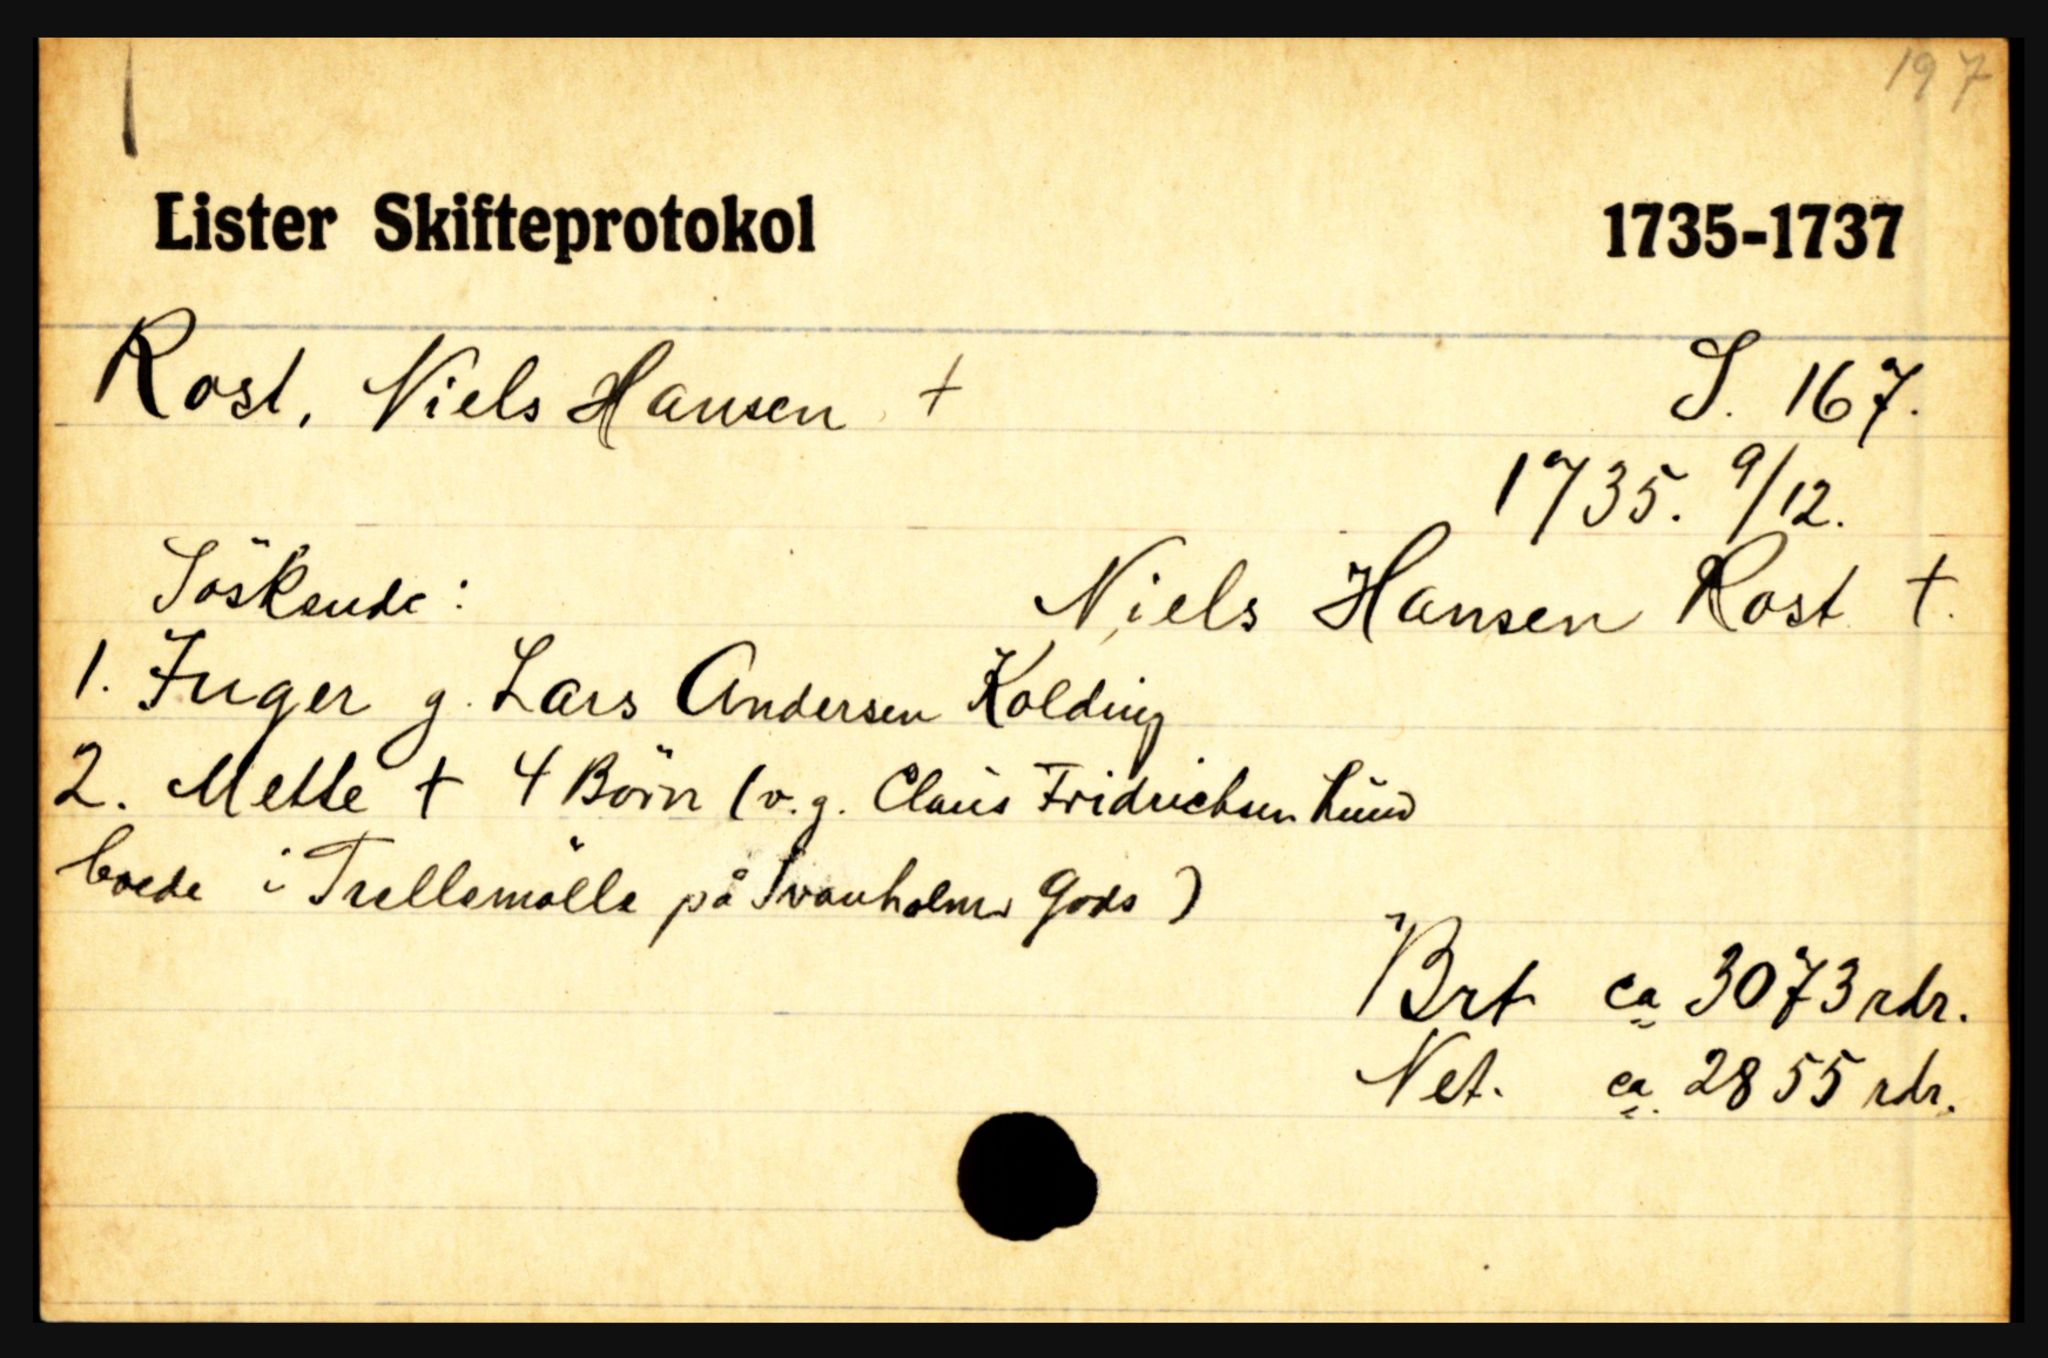 197
Lister Skifteprotokol 1735-1737
Rost, Niels Hansen † S. 167.
1735. 9/12.
Söskende: Niels Hansen Rost †.
1. Inger g. Lars Andersen Kolding
2. Mette † 4 Börn (v. g. Claus Fridrichsen Lund
boede i Trellemölle på Ivanholms Gods)
Brt ca 3073 rdr.
Net. ca. 2855 rdr.